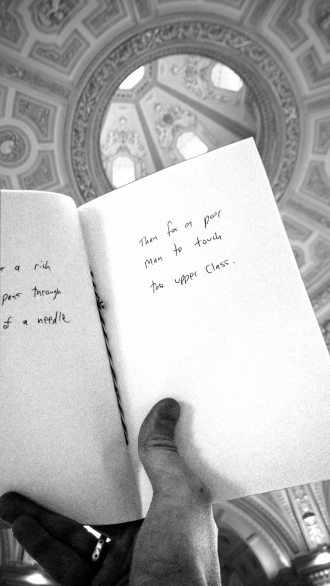 a rich
pass through
of a needle
Then for a poor
Man to touch
the upper Class.